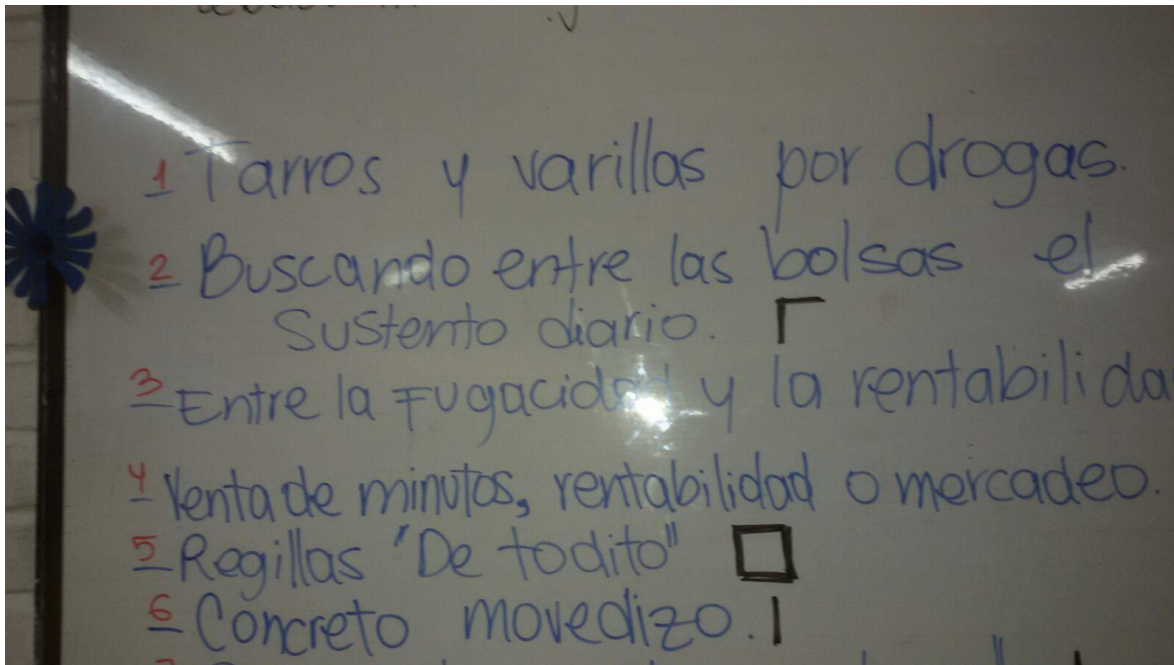 1 Tarros y varillas por drogas.
2 Buscando entre las bolsas el
sustento diario.
3 Entre la Fugacidad y la rentabilida
4 Venta de minutos, rentabilidad o mercadeo.
5 Regillas "De todito"
6 Concreto movedizo.